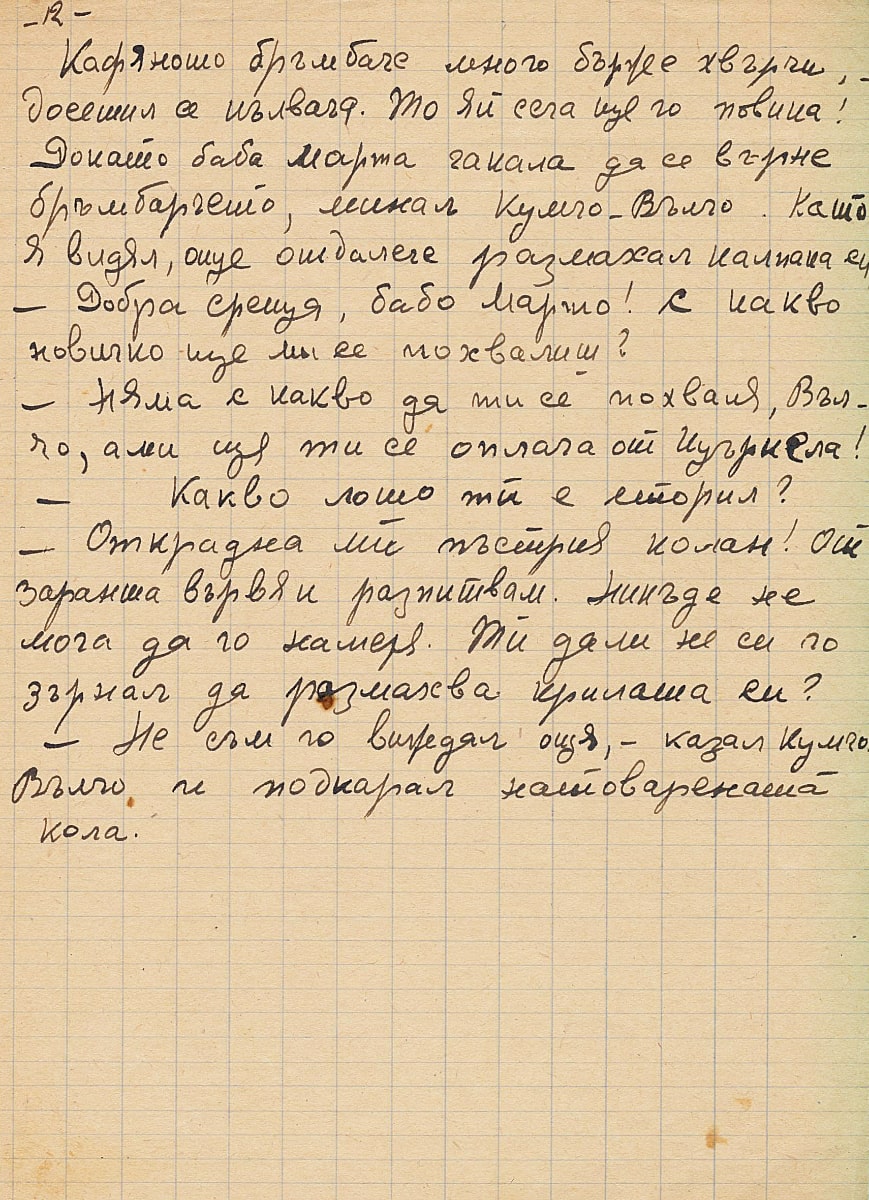 -12-
Кафяното бръмбаче много бърже хвърчи, -
досетил се кълвача. То ей сега ще го повика!
Докато баба Марта чакала да се върне
бръмбарчето, минал Кумчо-Вълчо. Като
я видял, още отдалече размахал калпака си
- Добра среща, бабо Марто! С какво
новичко ще ми се похвалиш?
- Няма с какво да ти се похваля, Въл-
чо, ами ще ти се оплача от Щъркела!
- Какво лошо ти е сторил?
- Открадна ми пъстрия колан! От
заранта вървя и разпитвам. Никъде не
мога да го намеря. Ти дали не си го
зърнал да размахва крилата си?
- Не съм го виждал още, - казал Кумчо
Вълчо и подкарал натоварената
кола.